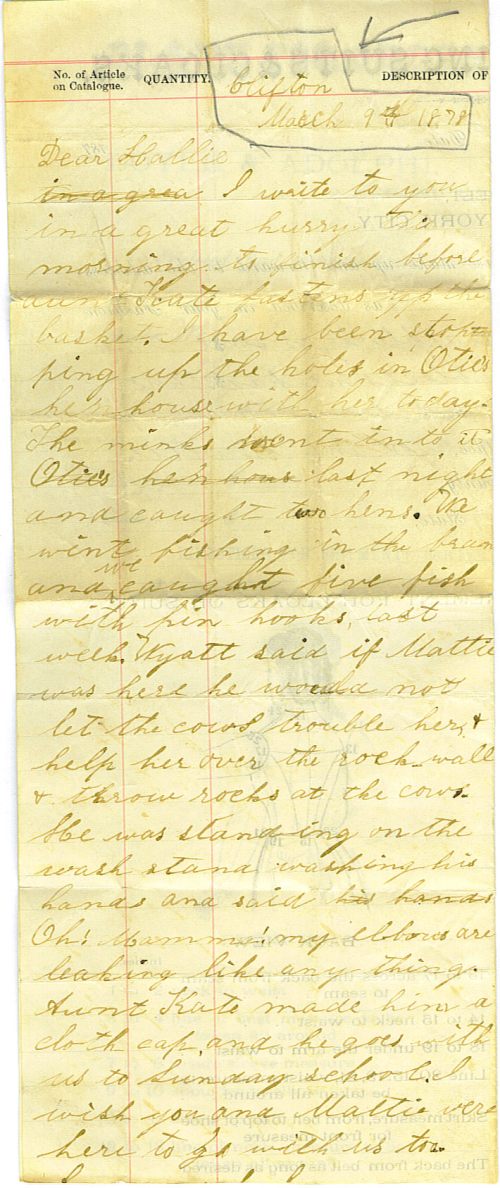 No. of Article
on Catalogue.
QUANTITY.
DESCRIPTION OF
Clifton
March 9th 1878
Dear Hallie
in a grea I write to you
in a great hurry this
morning to finish before
aunt Kate fastens up the
basket. I have been stop-
ping up the holes in Oties
hen house with her today.
The minks went in to it
Oties hen hous last night
and caught two hens. We
wint fishing in the
and we caught five fish
with pin hooks, last
week. Wyatt said if Mattie
was here he would not
let the cows trouble her, &
help her over the rock wall
& throw rocks at the cows.
He was standing on the
wash stand washing his
hands and said his hands
Oh! Mamma! my elbows are
leaking like any thing.
Aunt Kate made him a
cloth cap, and he goes with
us to Sunday school. I
wish you and Mattie were
here to go with us to.